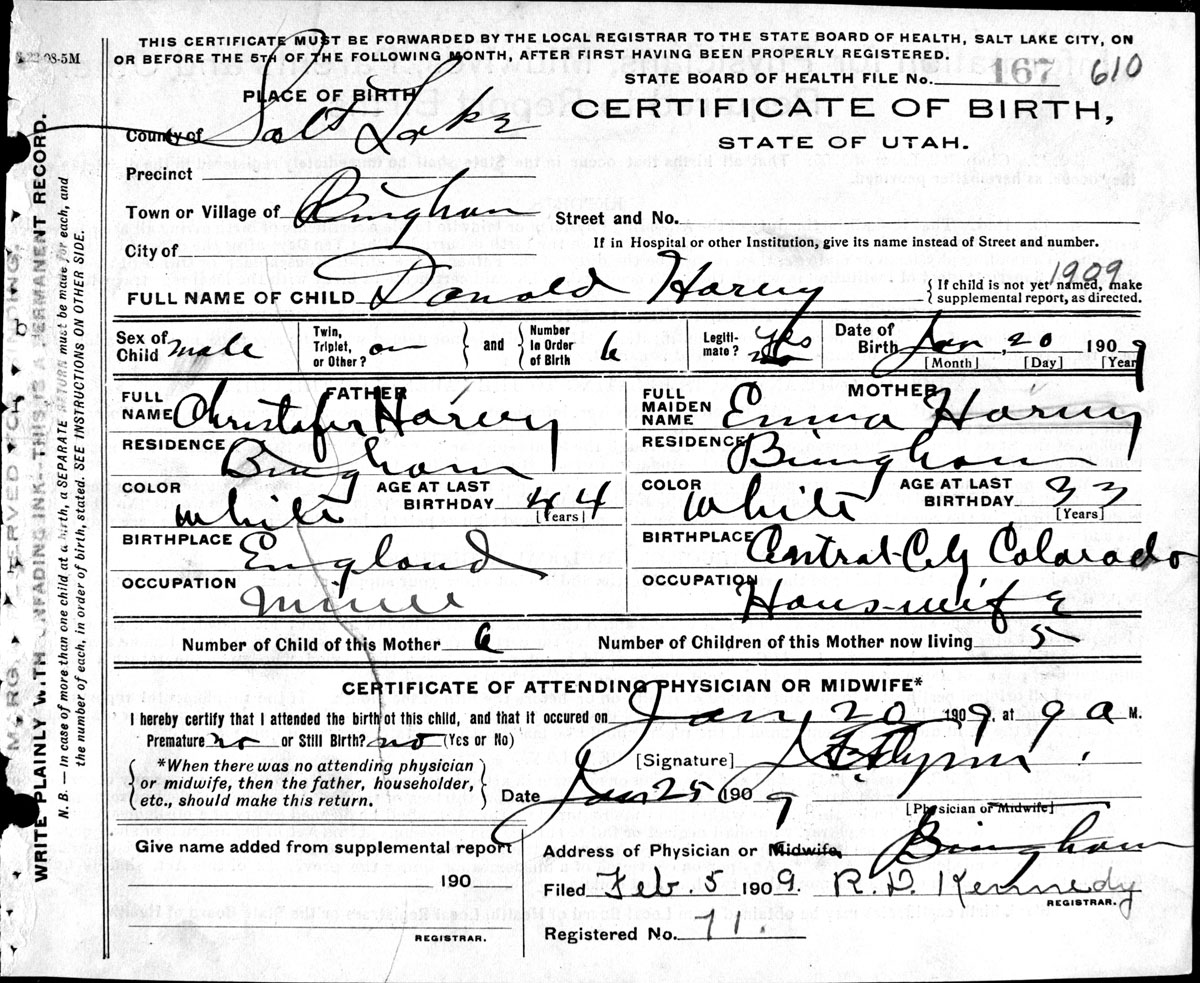 THIS CERTIFICATE MUST BE FORWARDED BY THE LOCAL REGISTRAR TO THE STATE BOARD OF HEALTH, SALT LAKE CITY, ON
OR BEFORE THE 5TH OF THE FOLLOWING MONTH, AFTER FIRST HAVING BEEN PROPERLY REGISTERED.
STATE BOARD OF HEALTH FILE No. 167 610
PLACE OF BIRTH
CERTIFICATE OF BIRTH,
STATE OF UTAH.
County of Salt Lake
Precinct
Town or Village of Bingham
Street and No.
If in Hospital or other Institution, give its name instead of Street and number.
City of
1909
FULL NAME OF CHILD Donald Harvey
If child is not yet named, make
supplemental report, as directed.
Sex of Child male
Twin, Triplet, or Other?
and
Number in Order of Birth 6
Legiti-mate? Yes
Date of Birth Jan, 20 1909
[Month] [Day] [Year]
FATHER
FULL NAME Christofer Harvey
RESIDENCE Bingham
COLOR White AGE AT LAST BIRTHDAY 44
[Years]
BIRTHPLACE England
OCCUPATION
MOTHER
FULL MAIDEN NAME Emma Harvey
RESIDENCE Bingham
COLOR White AGE AT LAST BIRTHDAY 33
[Years]
BIRTHPLACE Central City Colorado
OCCUPATION Hous-wife
Number of Child of this Mother 6
Number of Children of this Mother now living 5
CERTIFICATE OF ATTENDING PHYSICIAN OR MIDWIFE*
I hereby certify that I attended the birth of this child, and that it occured on Jan, 20 1909, at 9 a M.
Premature no or Still Birth? no (Yes or No)
*When there was no attending physician
or midwife, then the father, householder,
etc., should make this return.
[Signature]
Date Jan 25 1909
[Physician or Midwife]
Give name added from supplemental report
190
REGISTRAR.
Address of Physician or Midwife Bingham
Filed Feb. 5 1909. R. D. Kennedy
REGISTRAR.
Registered No. 11.
WRITE PLAINLY WITH UNFADING INK—THIS IS A PERMANENT RECORD.
N. B.— In case of more than one child at a birth, a SEPARATE RETURN must be made for each, and
the number of each, in order of birth, stated. SEE INSTRUCTIONS ON OTHER SIDE.